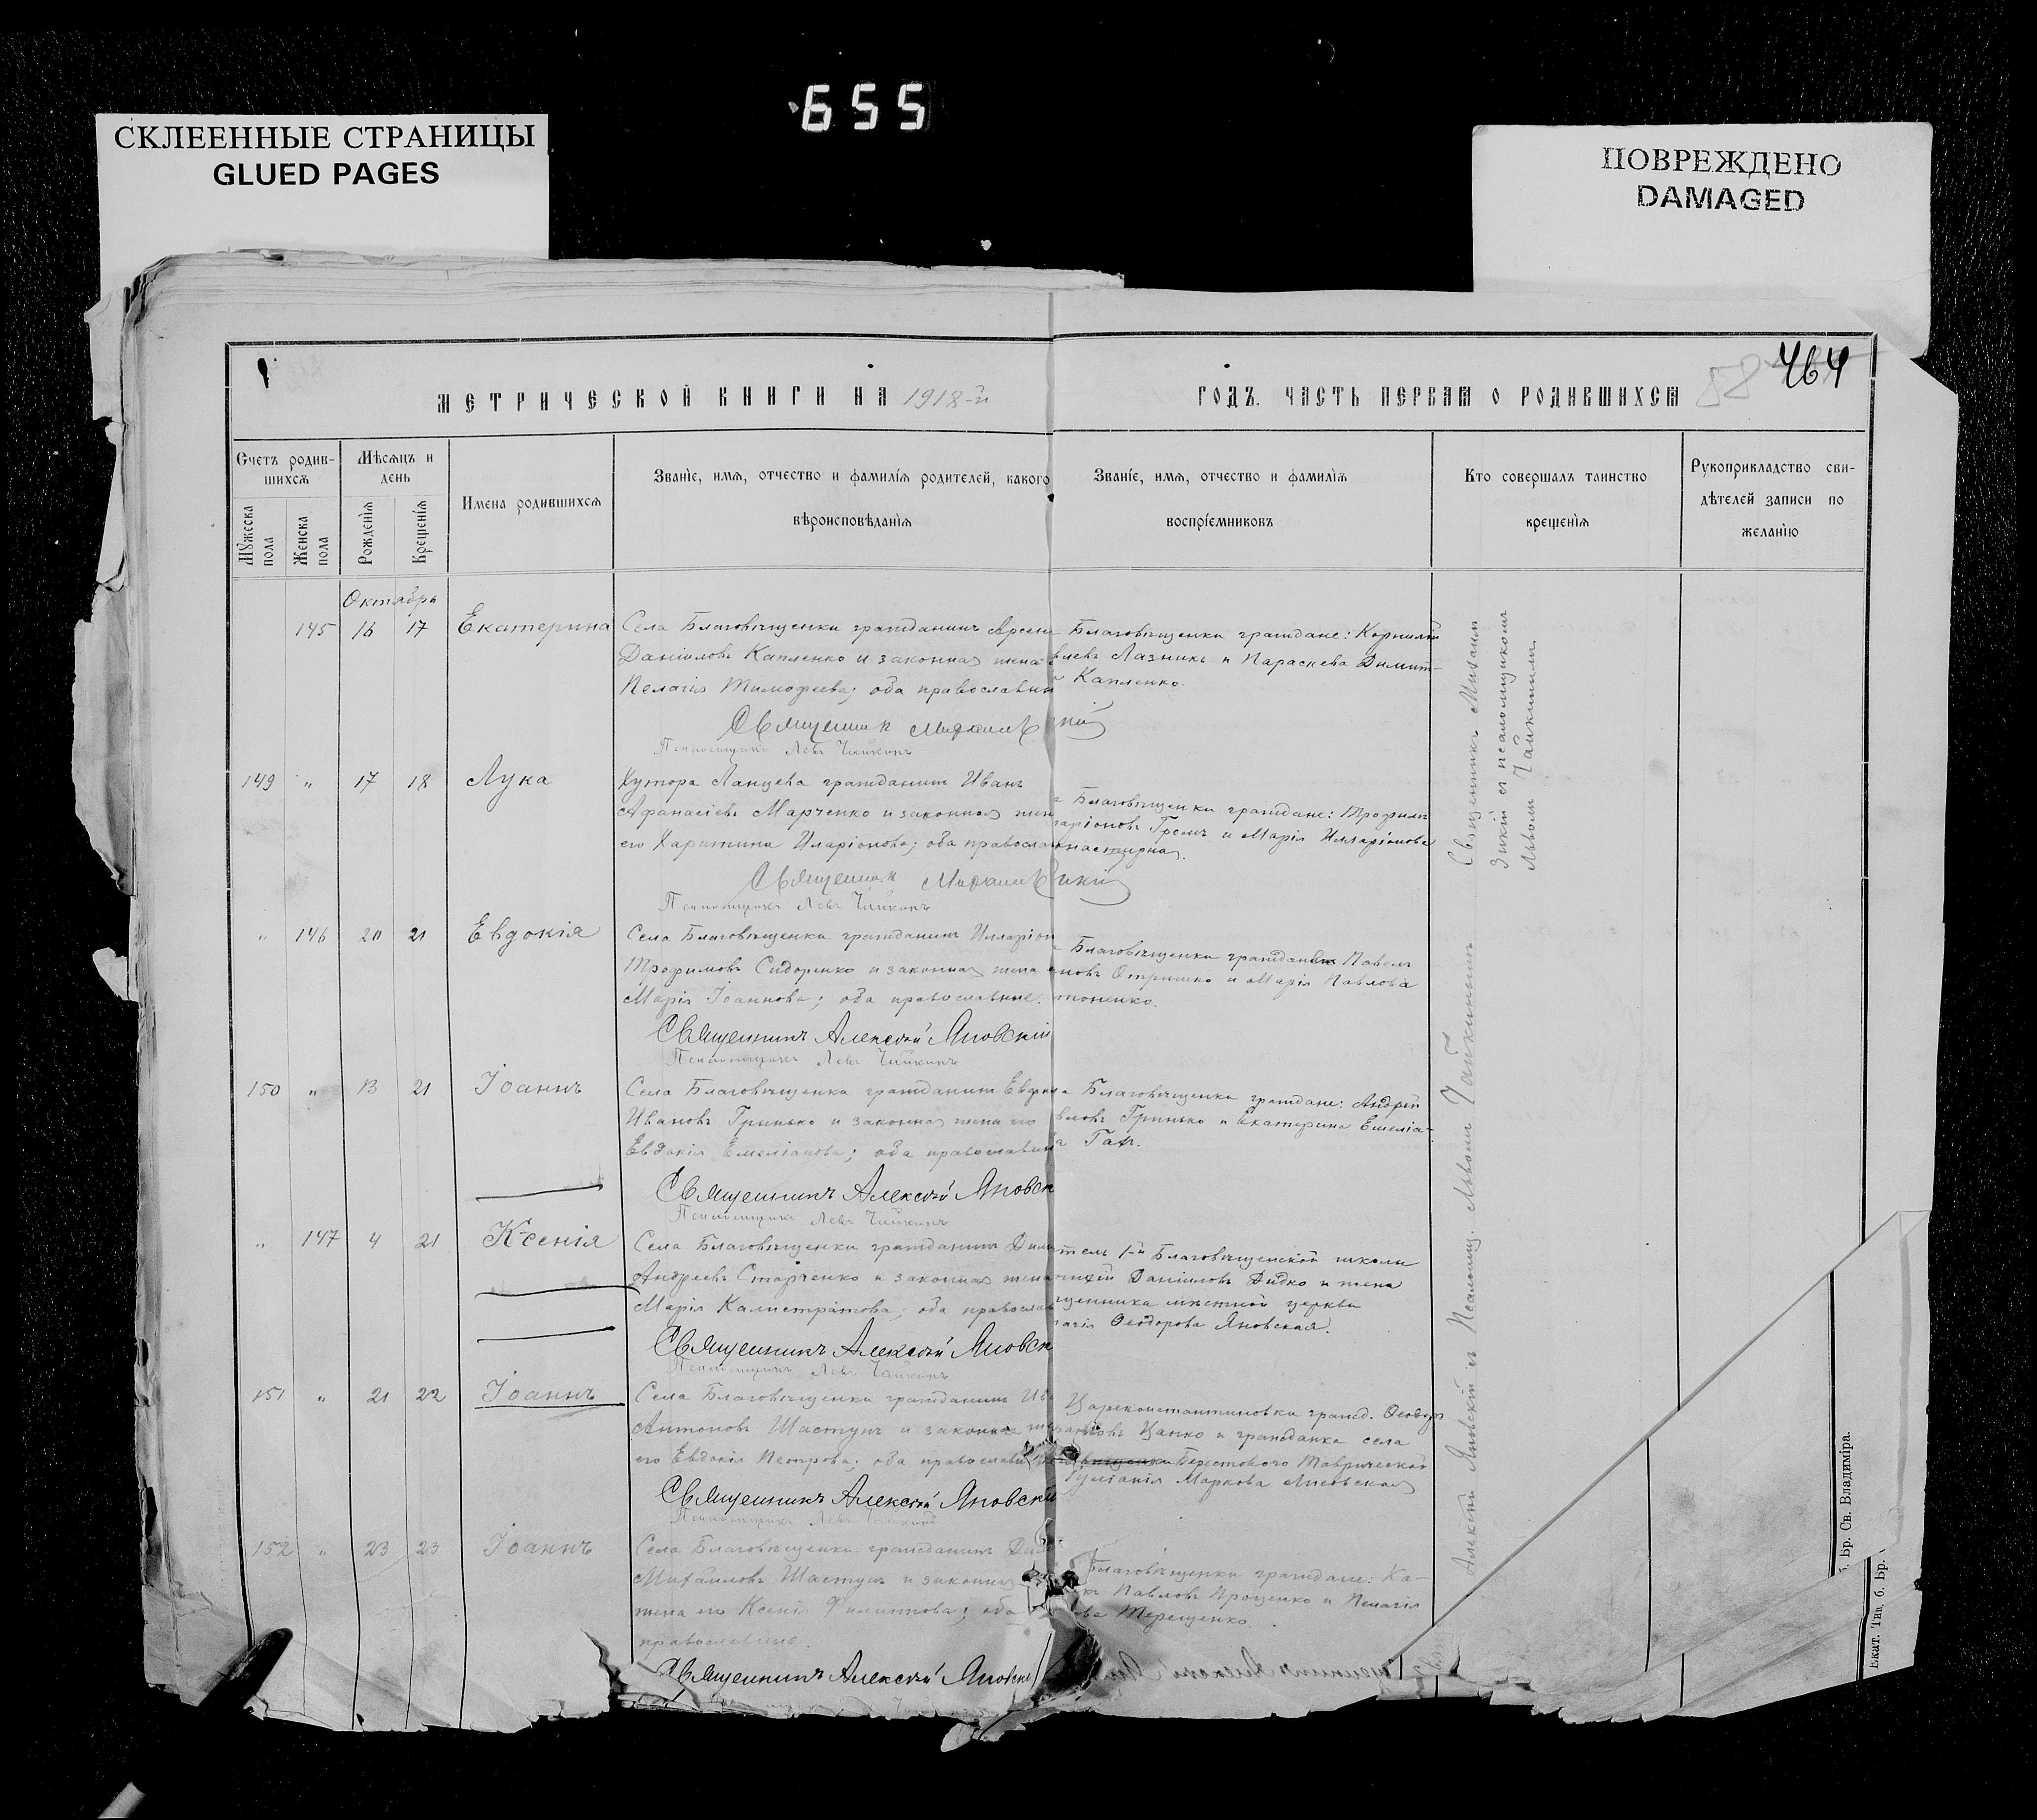 655
СКЛЕЕННЫЕ СТРАНИЦЫ
GLUED PAGES
ПОВРЕЖДЕНО
DAMAGED
464
58
МЕТРИЧЕСКОЙ КНИГИ НА 1918-й
ГОДЪ. ЧАСТЬ ПЕРВАЯ О РОДИВШИХСЯ
Счетъ родив-
шихся
Мужеска пола
Женска пола
Мѣсяцъ и
день
Рожденія
Крещенія
Имена родившихся
Званіе, имя, отчество и фамилія родителей, какого
вѣроисповѣданія
Званіе, имя, отчество и фамилія
воспріемниковъ
Кто совершалъ таинство
крещенія
Рукоприкладство сви-
дѣтелей записи по
желанію
Октябрь
145 16 17 Екатерина
Села Благовѣщенки гражданинъ Арсен
Даніиловъ Капленко и законная жена
Пелагія Тимофеева; оба православн
Благовѣщенки граждане: Корнилій
Лазникъ и Параскева Димит-
Капленко.
Священникъ Михалевскій
Псаломщикъ Левъ Чайкинъ
149 " 17 18 Лука
Хутора Ланцева гражданинъ Иванъ
Афанасіевъ Марченко и законная жен
его Харитина Иларіонова; оба правосла
Благовѣщенки граждане: Трофимъ
аріоновъ Громъ и Марія Илларіонова
Священникъ Михалевскій
Псаломщикъ Левъ Чайкинъ
" 146 20 21 Евдокія
Села Благовѣщенки гражданинъ Илларіон
Трофимовъ Сидоренко и законная жена
Марія Іоаннова; оба православные.
Благовѣщенки граждане Павелъ
новъ Отришко и Марія Павлова
тоненко.
Священникъ Алексѣй Яновскій
Псаломщикъ Левъ Чайкинъ
150 " 13 21 Іоаннъ
Села Благовѣщенки гражданинъ
Ивановъ Гринько и законная жена его
Евдокія Емеліанова; оба православн
Благовѣщенки граждане: Андрей
вловъ Гринько и Екатерина Емеліа-
Священникъ Алексѣй Яновск
Псаломщикъ Левъ Чайкинъ
" 147 4 21 Ксенія
Села Благовѣщенки гражданинъ Дим
Андреевъ Старченко и законная жена
Марія Калистратова; оба православ
тель 1-й Благовѣщенской школы
Даніиловъ Дидко и жена
щенника мѣстной церкви
Ѳеодорова Яновская.
Священникъ Алексѣй Яновск
Псаломщикъ Левъ Чайкинъ
151 " 21 22 Іоаннъ
Села Благовѣщенки гражданинъ Ив
Антоновъ Шастунъ и законная
его Евдокія Петрова; оба православн
Цареконстантиновки гражд. Ѳеодоръ
Цапко и гражданка села
Берестового Таврической
Маркова Лисовская
Священникъ Алексѣй Яновскій
Псаломщикъ Левъ Чайкинъ
152 " 23 23 Іоаннъ
Села Благовѣщенки гражданинъ
Михайловъ Шастунъ и законная
жена его Ксенія Филиппова; оба
православные.
Благовѣщенки граждане: Ка-
Павловъ Проценко и Пелагія
ова Терещенко.
Священникъ Алексѣй Яновскі
Священникъ Михаилъ
съ псаломщикомъ
Львомъ Чайкинымъ
Алексѣй Яновскій съ Псаломщ. Львомъ Чайкинымъ
. Бр. Св. Владиміра.
Екат. Тип. б. Бр.